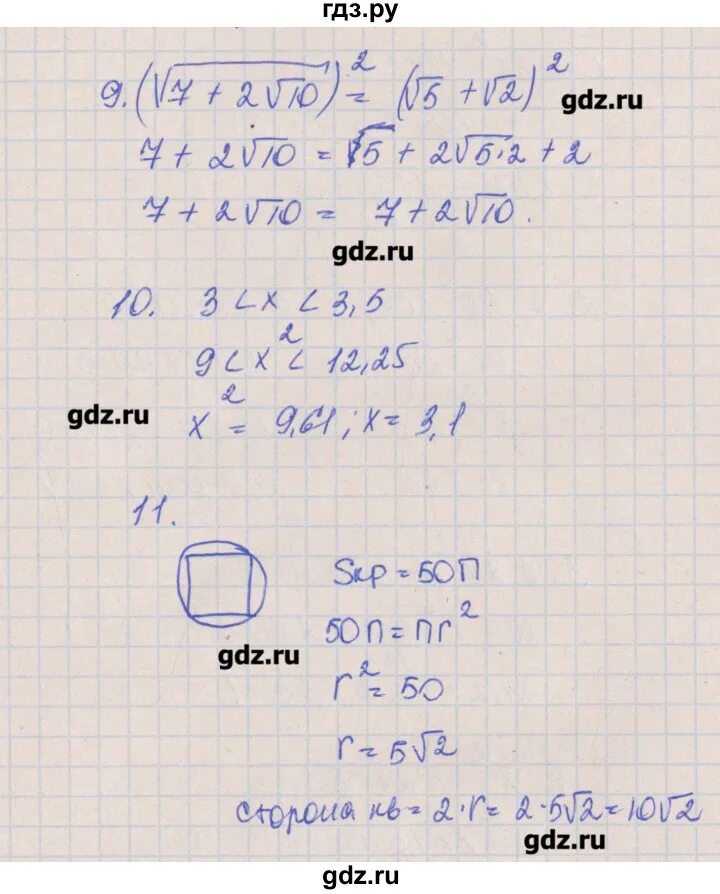 гдз.ру
9. (√(7 + 2√10))² = (√5 + √2)²
gdz.ru
7 + 2√10 = 5 + 2√5·2 + 2
7 + 2√10 = 7 + 2√10.
gdz.ru
10. 3 < x < 3,5
9 < x² < 12,25
gdz.ru
x² = 9,61; x = 3,1
11.
Sкр = 50П
50П = Пr²
gdz.ru
r² = 50
r = 5√2
сторона кв = 2·r = 2·5√2 = 10√2
gdz.ru
gdz.ru